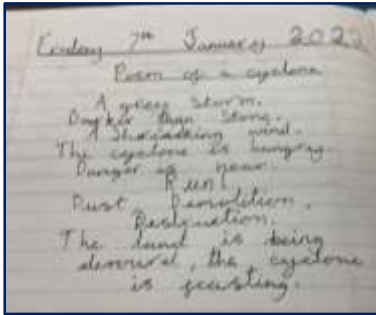 Friday 7th January 2022
Poem of a cyclone
A grey storm.
Darker than stone.
A shreaking wind.
The cyclone is hungrey.
Danger is near.
Run!
Dust, Demolition.
Destruction.
The land is being
devoured, the cyclone
is feasting.